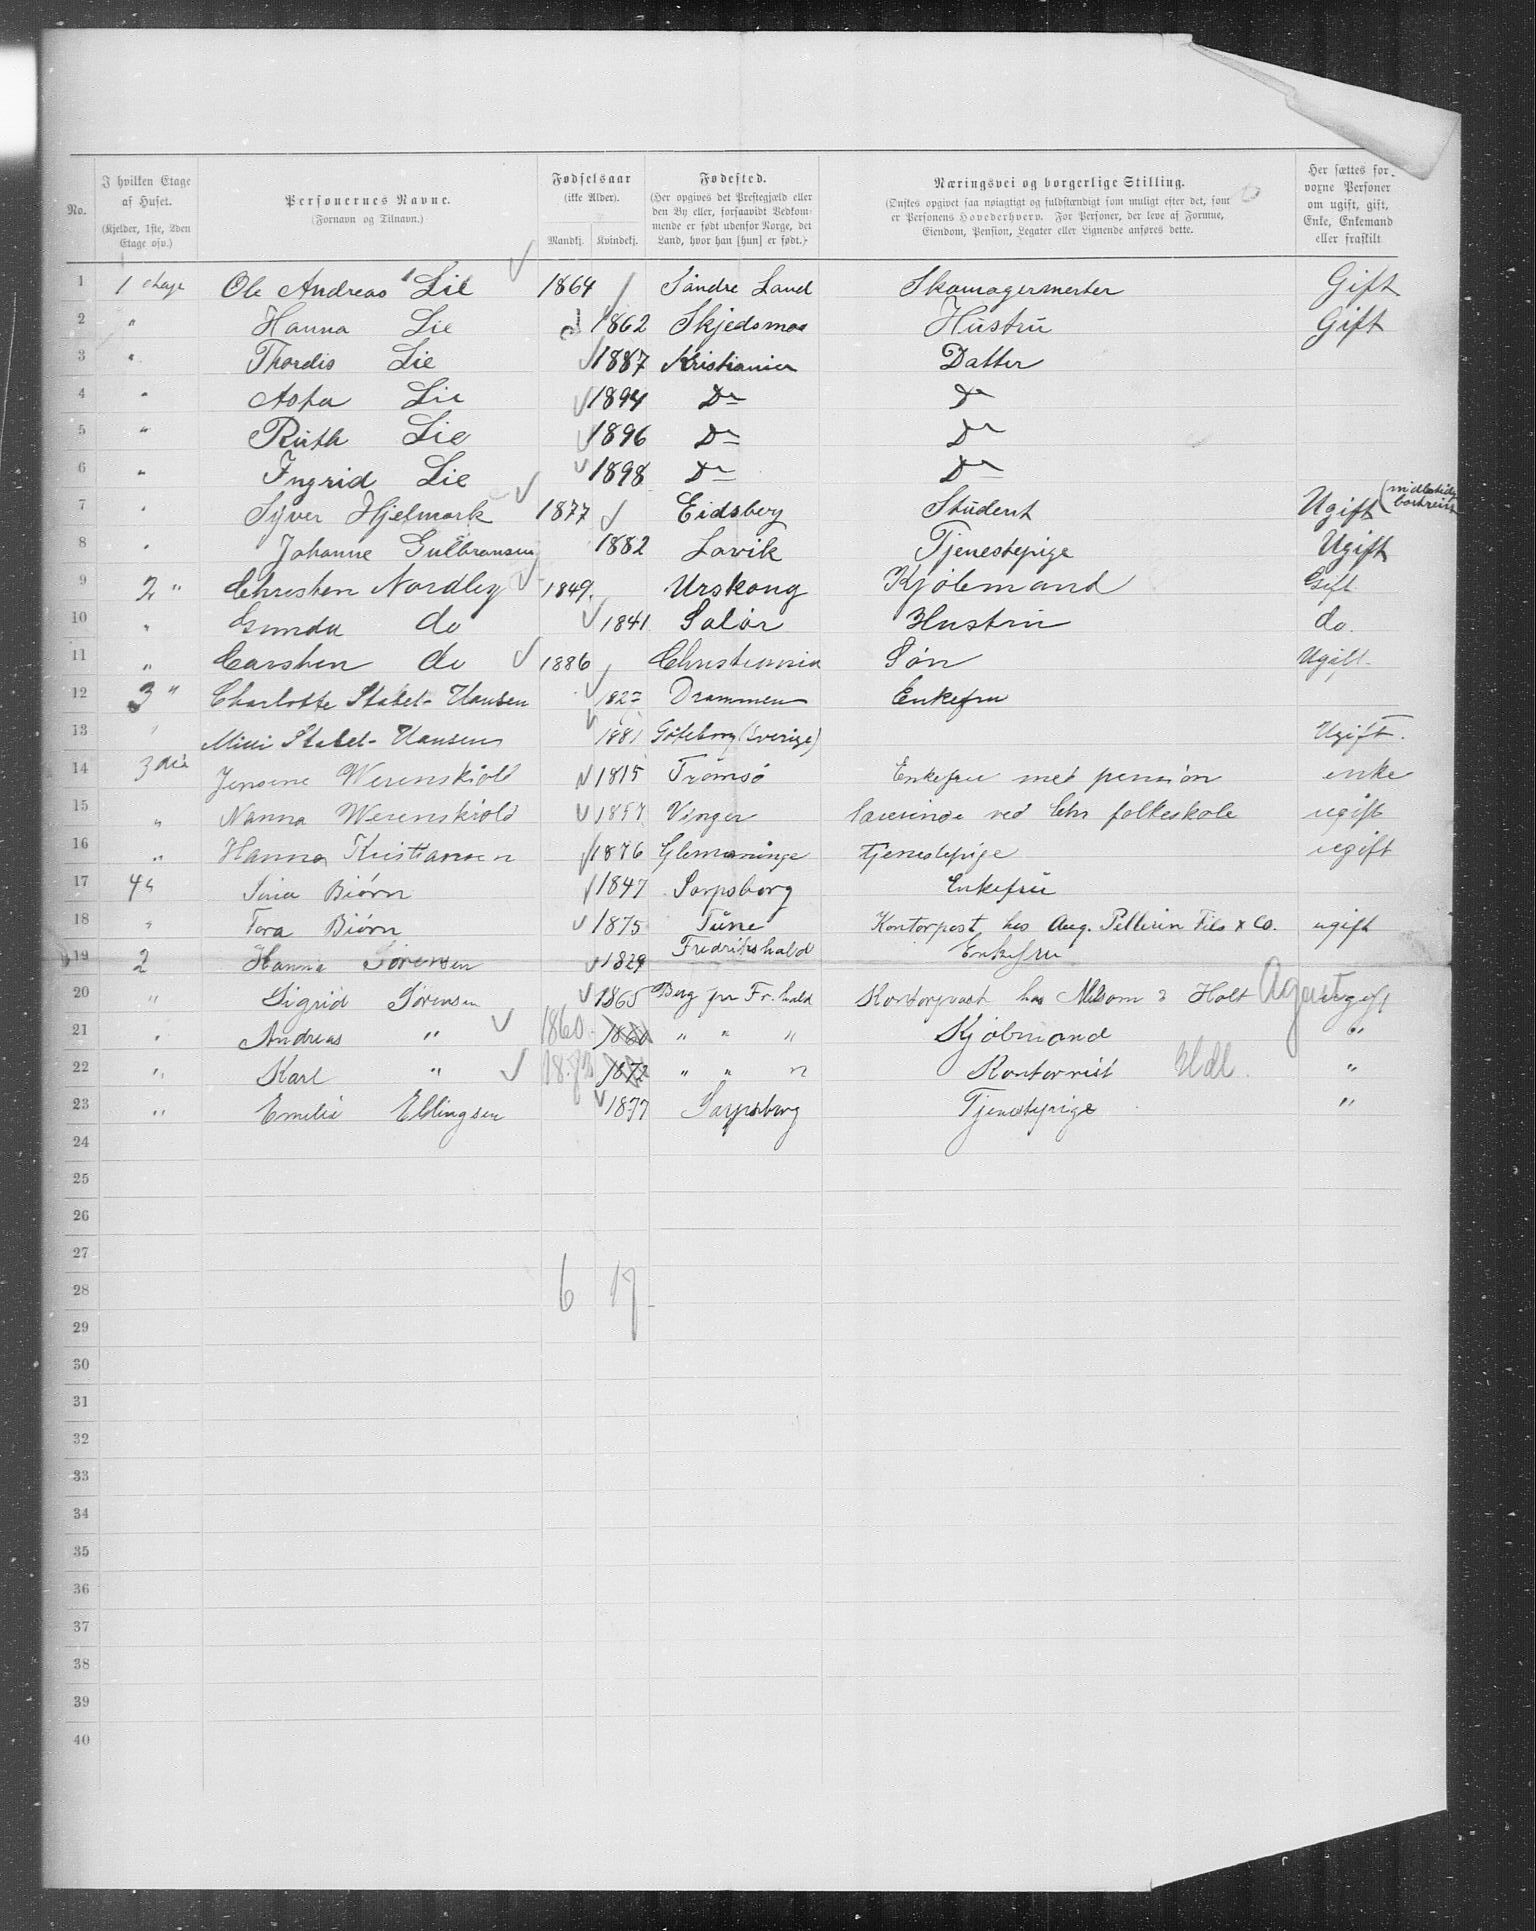 No.
I hvilken Etage af Huset. (Kjelder, 1ste, 2den Etage osv.)
Personernes Navne. (Fornavn og Tilnavn.)
Fødselsaar (ikke Alder). Mandkj. Kvindekj.
Fødested. (Her opgives det Prestegjæld eller den By eller, forsaavidt Vedkommende er født udenfor Norge, det Land, hvor han [hun] er født.)
Næringsvei og borgerlige Stilling. (Ønskes opgivet saa nøiagtigt og fuldstændigt som muligt efter det, som er Personens Hovederhverv. For Personer, der leve af Formue, Eiendom, Pension, Legater eller Lignende anføres dette.
Her sættes for voxne Personer om ugift, gift, Enke, Enkemand eller fraskilt
1 1 etage Ole Andreas Lie 1864 Søndre Land Skomagermester Gift
2 " Hanna Lie 1862 Skjedsmo Hustru Gift
3 " Thordis Lie 1887 Kristiania Datter
4 " Asta Lie 1894 Do Do
5 " Ruth Lie 1896 Do Do
6 " Ingrid Lie 1898 Do Do
7 " Syver Hjelmark 1877 Eidsberg Student Ugift (midlertidig bortreist
8 " Johanne Gulbransen 1882 Lavik Tjenestepige Ugift
9 2 " Christen Nordley 1849. Urskoug Kjøbmand Gift
10 " Gunda do 1841 Solør Hustru do.
11 " Carsten do 1886 Christiania Søn Ugift.
12 3 " Charlotte Stabel-Hansen 1827 Drammen Enkefru
13 " Milli Stabel-Hansen 1881 Göteborg (Sverige) Ugift.
14 3die Jensine Werenskiold 1815 Tromsø Enkefru med pension enke
15 " Nanna Werenskiold 1857 Vinger lærerinde ved Chr folkeskole ugift
16 " Hanna Kristiansen 1876 Glemminge tjenestepige ugift
17 4 " Sina Biørn 1847 Sarpsborg Enkefru
18 " Tora Biørn 1875 Tune Kontorpost hos Aug. Pellerin Fils & Co. ugift
19 2 Hanna Sørensen 1829 Fredrikshald Enkefru
20 " Sigrid Sørensen 1865 Berg pr Fr.hald Kontorpost hos Nilsom & Holt Agent ugift
21 " Andreas " 1860. 1860 " " " Kjøbmand "
22 " Karl " 1872 1872 " " " Kontorvist Udl. "
23 " Emilie Ellingsen 1877 Sarpsborg Tjenestepige "
24
25
26
27
28
6 17
29
30
31
32
33
34
35
36
37
38
39
40